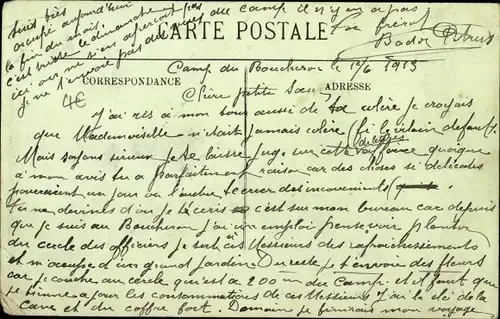 Suis très
occupé aujourd'hui
la fin du mois.
c'est triste le dimanche
ici on ne s'en aperçoit pas
je ne t'envoie pas de
du camp il n'y en a pas
ton frère
CARTE POSTALE
CORRESPONDANCE
ADRESSE
4€
Camp du Boucheron le 12/6 1913
Chère petite Sœur
J'ai ris à mon saoul aussi de ta colère je croyais
que Mademoiselle n'était jamais colère (fi le vilain défaut).
Mais soyons sérieux je te laisse juge sur cette affaire quoique
à mon avis tu a parfaitement raison car des choses si délicates
pourraient un jour ou l'autre causer des inconvénients
tu ne devines d'où je t'écris c'est sur mon bureau car depuis
que je suis au Boucheron j'ai un emploi pense voir planton
du cercle des officiers je sert à ces Messieurs des rafraichissements
et m'occupe d'un grand jardin. Du reste je t'envoie des fleurs
car je couche au cercle qui est à 200 m du Camp et il faut que
je sois là pour les consommations de ces Messieurs j'ai la clé de la
cave et du coffre fort. Demain je finirais mon voyage